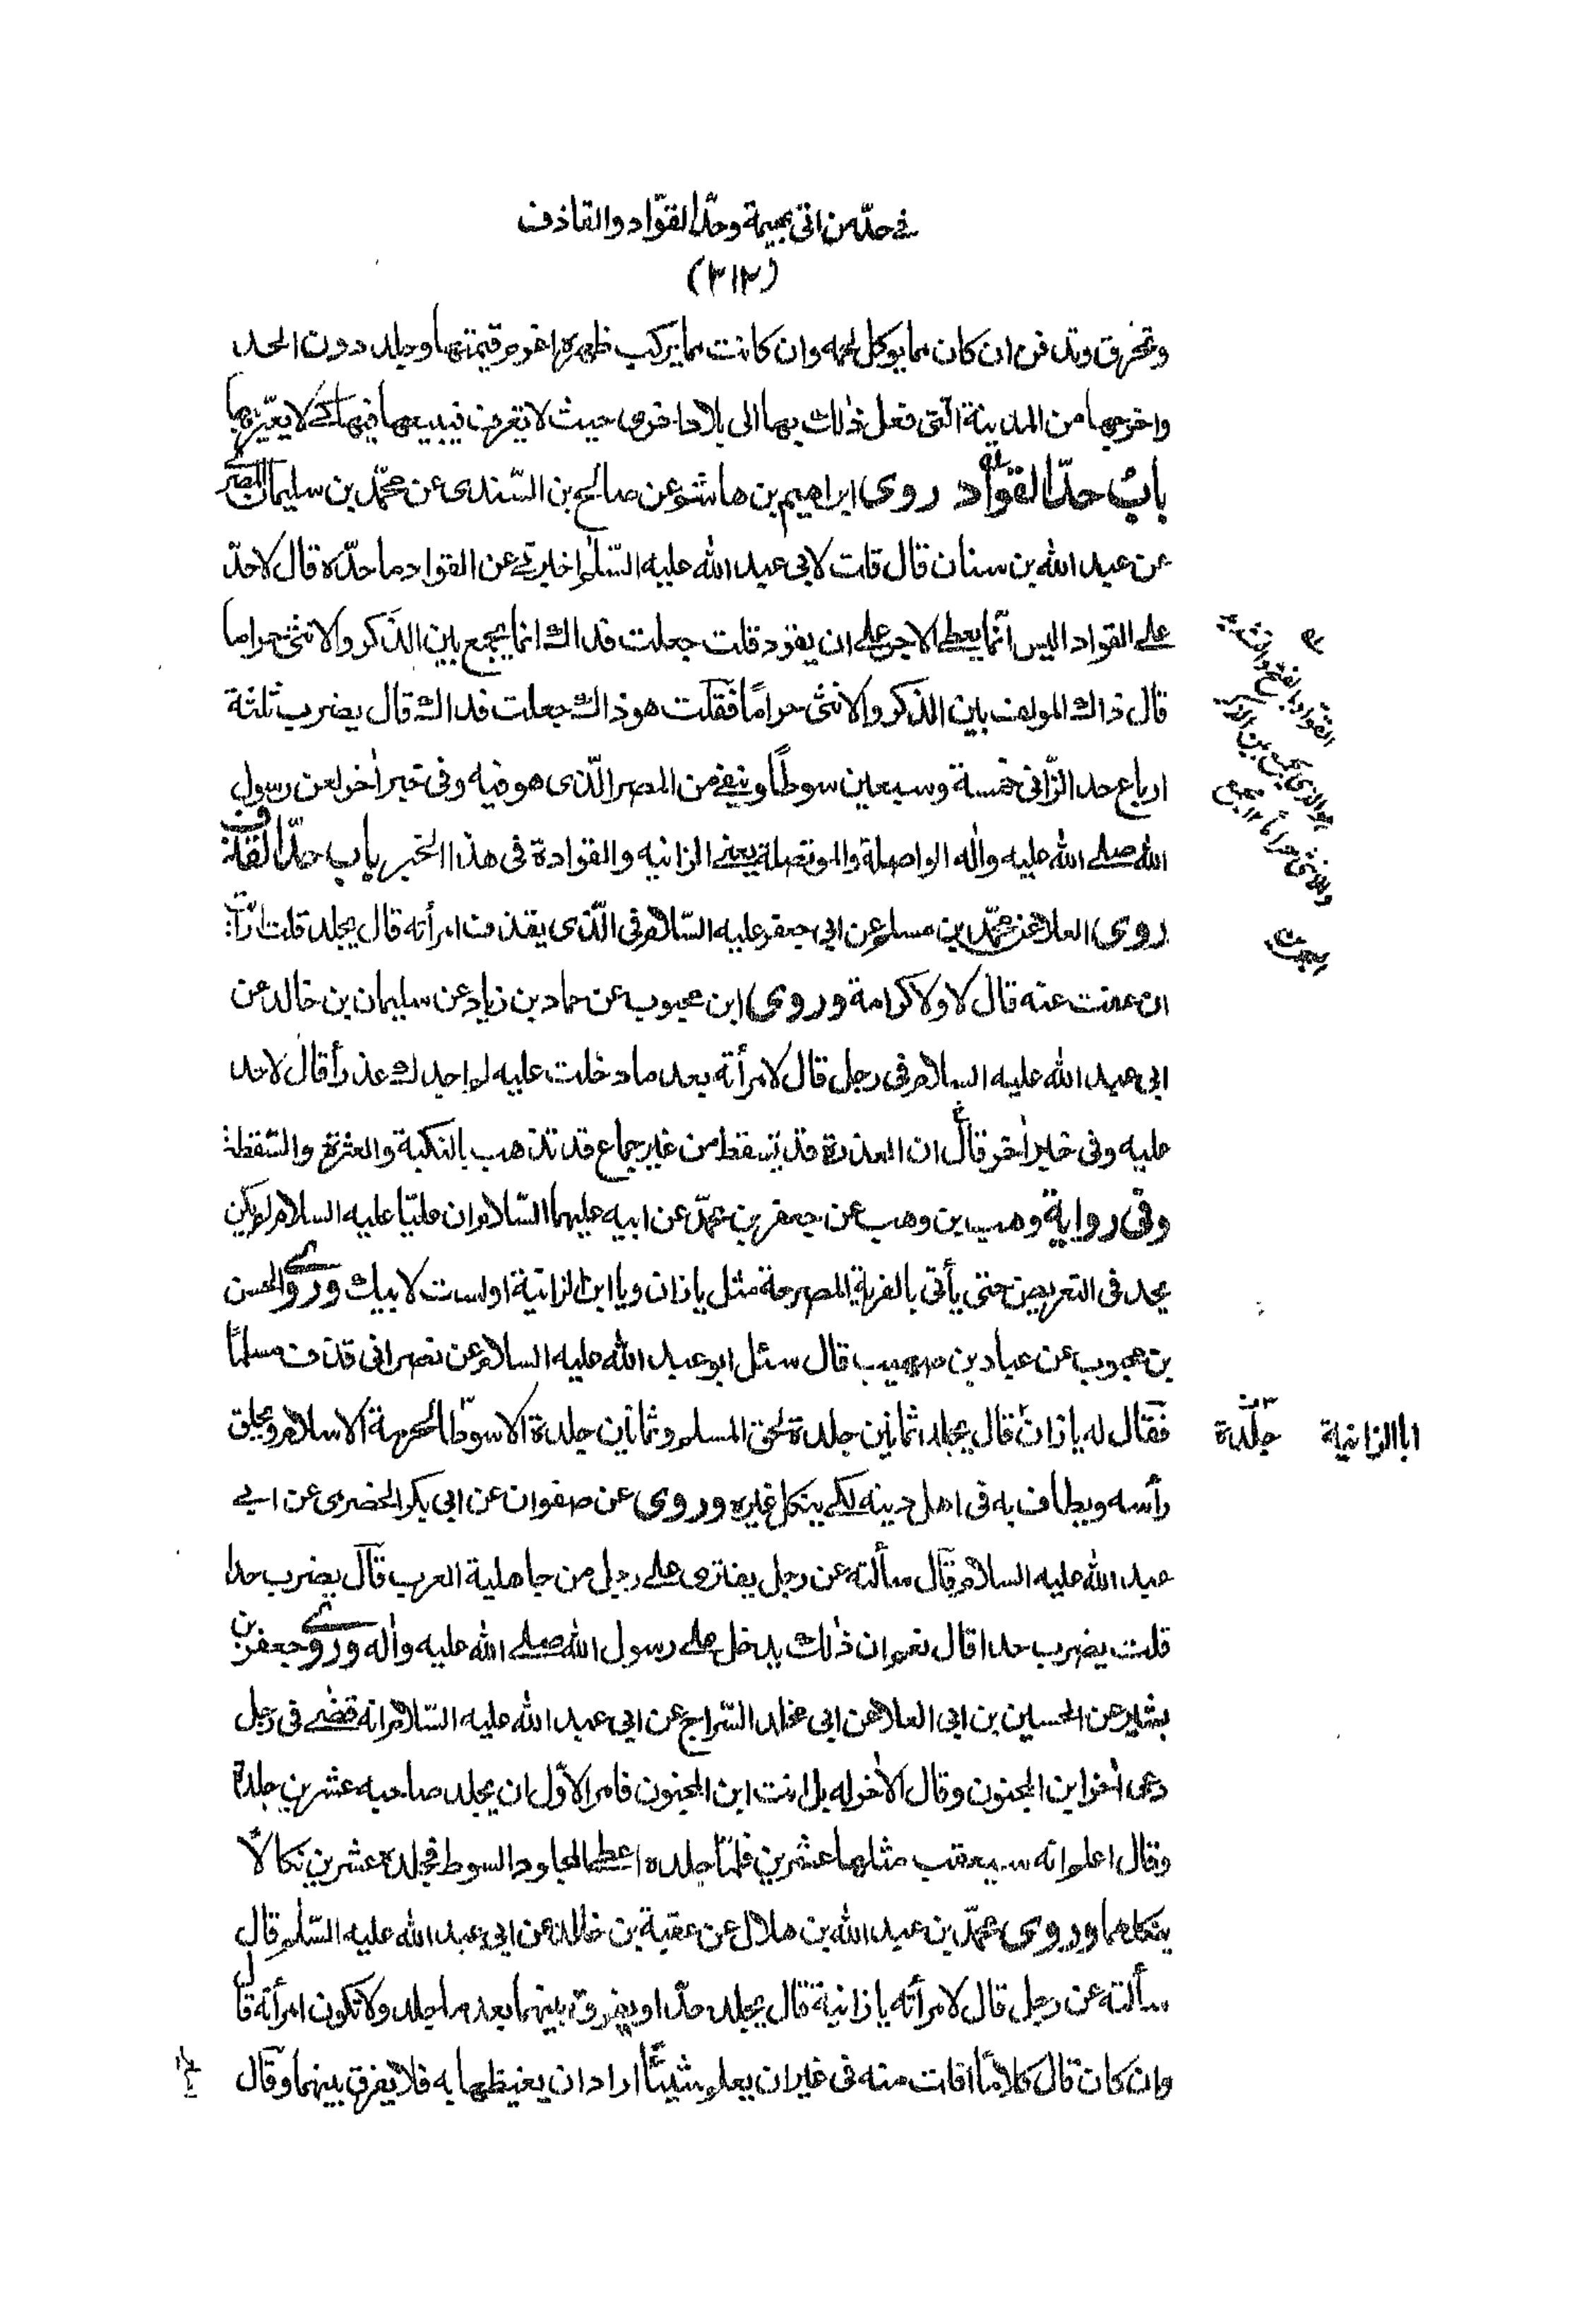 في حدّ من اتى بهيمة وحدّ القوّاد والقاذف
(٣١٢)
وتحرق وتدفن ان كان مما يوكل لحمه وان كانت مما يركب ظهره اغرم قيمتها وجلد دون الحد
واخرجها من المدينة الّتى فعل ذٰلك بها الى بلاد اخرى حيث لا تعرف فيبيعها فيها كے لا يعيّر بها
بابُ حدّ القوّاد روى ابراهيم بن هاشم عن صالح بن السّندى عن محمّد بن سليمان المصرے
عن عبد الله بن سنان قال قلت لابى عبد الله عليه السّلٰم اخبرنے عن القواد ما حدّه قال لا حدّ
علے القواد اليس انّما يعطے الاجر علے ان يقود قلت جعلت فداك انما يجمع بين الذكر والانثى حراما
قال ذاك المولف بين الذكر والانثى حرامًا فقلت هو ذاك جعلت فداك قال يضرب ثلثة
ارباع حد الزّانى خمسة وسبعين سوطًا وينفے من المصر الّذى هو فيه وفى خبر اٰخر لعن رسول
الله صلے الله عليه واٰله الواصلة والموتصلة يعنے الزانيه والقوادة فى هذا الخبر باب حدّ القذف
روى العلا عن محمّد بن مسلم عن ابى جعفر عليه السّلام فى الّذى يقذف امرأته قال يجلد قلت ارأيت
ان عفت عنه قال لا ولا كرامة وروى ابن محبوب عن حماد بن زياد عن سليمان بن خالد عن
ابى عبد الله عليه السلام فى رجل قال لامرأته بعد ما دخلت عليه لم اجدك عذرأ قال لا حد
عليه وفى خبر اٰخر قال ان العذرة قد تسقط من غير جماع قد تذهب بالنكبة والعثرة والسّقطة
وفى رواية وهب بن وهب عن جعفر بن محمّد عن ابيه عليهما السّلام ان عليّا عليه السلام لم يكن
يحد فى التعريض حتى يأتى بالفرية المصرحة مثل يا زان ويا ابن الزانية او لست لابيك وروے الحسن
بن محبوب عن عباد بن صهيب قال سئل ابو عبد الله عليه السلام عن نصرانى قذف مسلمًا
فقال له يا زان قال يجلد ثمانين جلدة لحق المسلم وثمانين جلدة الا سوطا لحرمة الاسلام ويحلق
ابا الزانية جلدة
رأسه ويطاف به فى اهل دينه لكے ينكل غيره وروى عن صفوان عن ابى بكر الحضرمى عن ابے
عبد الله عليه السلام قال سألته عن رجل يفترى علے رجل من جاهلية العرب قال يضرب حدا
قلت يضرب حدا قال نعم ان ذٰلك يدخل علے رسول الله صلے الله عليه واٰله وروے جعفر بن
بشير عن الحسين بن ابى العلا عن ابى مخلد السّراج عن ابى عبد الله عليه السّلام انه قضے فى رجل
دعى اٰخر ابن المجنون وقال الاٰخر له بل انت ابن المجنون فامر الاوّل ان يجلد صاحبه عشرين جلدة
وقال اعلم انه سيعقب مثلها عشرين فلمّا جلده اعطے المجلود السوط فجلده عشرين نكالًا
ينكل بهما وروى محمّد بن عبد الله بن هلال عن عقبة بن خالد عن ابى عبد الله عليه السّلٰم قال
سألته عن رجل قال لامرأته يا زانية قال يجلد حدّا ويفرق بينهما بعد ما جلد ولا تكون امرأته قال
وان كان قال كلامًا افلت منه فى غير ان يعلم شيئًا اراد ان يغيظها به فلا يفرق بينهما وقال